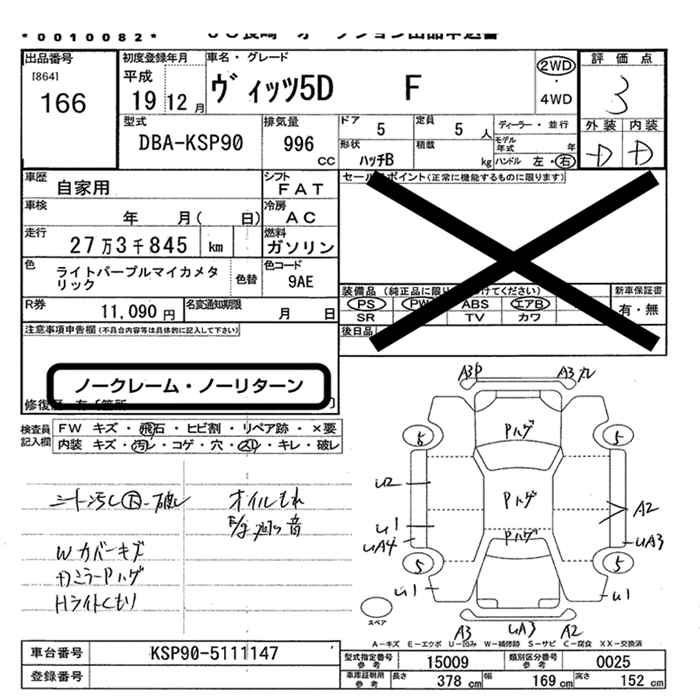 *0010082*
出品番号
[864]
166
初度登録年月
平成
19 12 月
車名・グレード
ヴィッツ5D F
2WD
・
4WD
評価点
3
外装 内装
D D
型式
DBA-KSP90
排気量
996 cc
ドア
5
定員
5 人
ディーラー・並行
モデル年式 年
形状
ハッチB
積載 kg
ハンドル 左・右
車歴
自家用
シフト
FAT
車検
年 月( 日)
冷房
AC
走行
27万3千845 km
燃料
ガソリン
色
ライトパープルマイカメタリック
色替
色コード
9AE
R券
11,090 円
名変通知期限
月 日
セールスポイント(正常に機能するものに限ります)
新車保証書
有・無
PS PW ABS エアB
SR TV カワ
後日品
注意事項申告欄(不具合内容等は具体的に記入して下さい)
ノークレーム・ノーリターン
検査員記入欄
FW キズ・飛石・ヒビ割・リペア跡・×要
内装 キズ・汚レ・コゲ・穴・スレ・キレ・破レ
シート汚し 破レ
オイルもれ
Wカバーキズ
ドミラーPハゲ
Hライトくもり
A3P A3
Pハゲ
6 5
U2
Pハゲ
A2
U1
UA4
Pハゲ
UA3
5 5
U1 U1
スペア
A3 UA3 A2
A-キズ E-エクボ U-凹み W-補修跡 S-サビ C-腐食 XX-交換済
車台番号
KSP90-5111147
登録番号
型式指定番号 参考
15009
類別区分番号 参考
0025
車庫証明用 参考
長さ 378 cm 幅 169 cm 高さ 152 cm